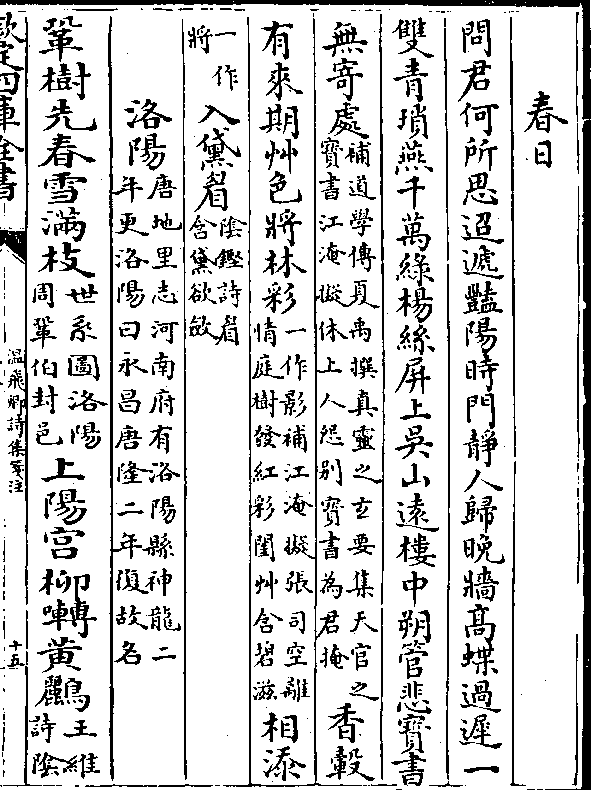 春日
問君何所思迢遞豔陽時門靜人歸晚牆髙蝶過遲一
雙青瑣燕千萬緑楊絲屏上吳山遠樓中朔管悲寳書
無寄處補道學傳夏禹撰真靈之玄要集天官之寳書江淹擬休上人怨别寳書為君掩香轂
有來期艸色將林彩一作影補江淹擬張司空離情庭樹發紅彩閨艸含碧滋相添
一作將入黛眉隂鏗詩眉含黛欲斂
洛陽唐地里志河南府有洛陽縣神龍二年更洛陽曰永昌唐隆二年復故名
鞏樹先春雪滿枝世系圖洛陽周鞏伯封邑上陽宫柳囀黄鸝王維詩隂
欽定四庫全書
溫飛卿詩集箋注
十五